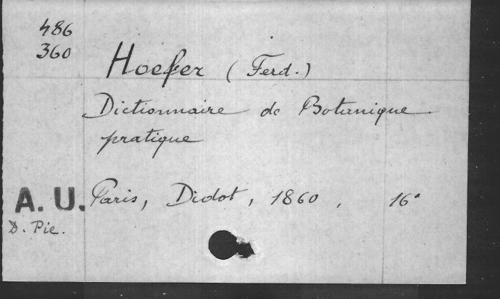 486
360
Hoefer (Ferd.)
Dictionnaire de Botanique
pratique
A. U. Paris, Didot, 1860, 16°
D. Pie.